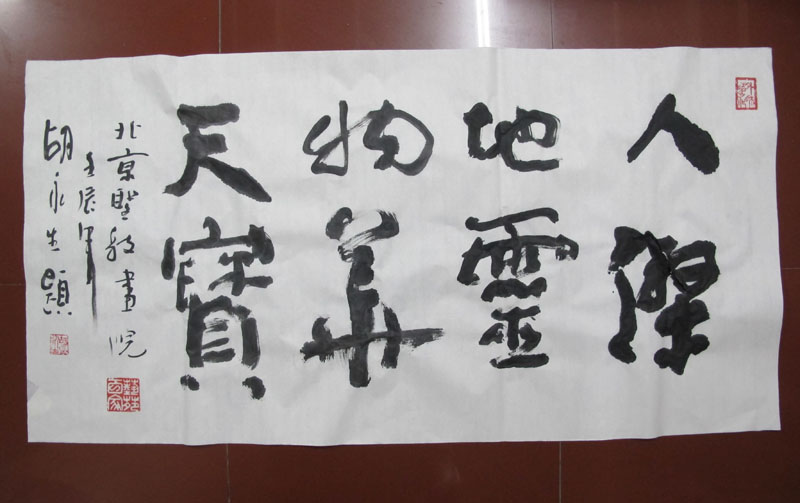 人傑
地靈
物華
天寶
北京畫院
壬辰年
胡永生題